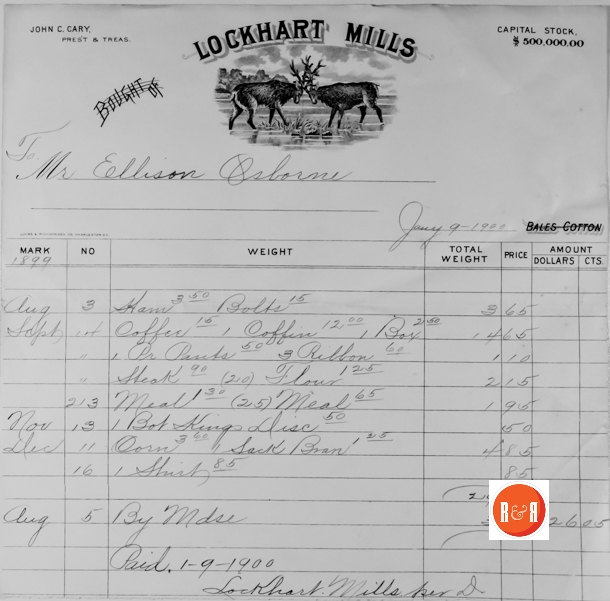 JOHN C. CARY,
PREST & TREAS.
LOCKHART MILLS
CAPITAL STOCK,
$ 500,000.00
BOUGHT OF
To
Mr Ellison Osborne
Jany 9-1900
BALES COTTON
MARK NO WEIGHT TOTAL WEIGHT PRICE AMOUNT
DOLLARS CTS.
1899
Aug 3 Ham 3 50 Bolts 15 3 65
Sept 14 Coffee 15 1 Coffin 12 00 1 Box 2 50 14 65
" 1 Pr Pants 50 3 Ribbon 60 1 10
" Steak 90 (20) Flour 1 25 2 15
213 Meal 1 30 (25) Meal 65 1 95
Nov 13 1 Bot Kings Disc 50 50
Dec 11 Corn 3 60 1 Sack Bran 1 25 4 85
16 1 Shirt 85 85
R&R
Aug 5 By Mdse 26 05
Paid. 1-9-1900
Lockhart Mills per D